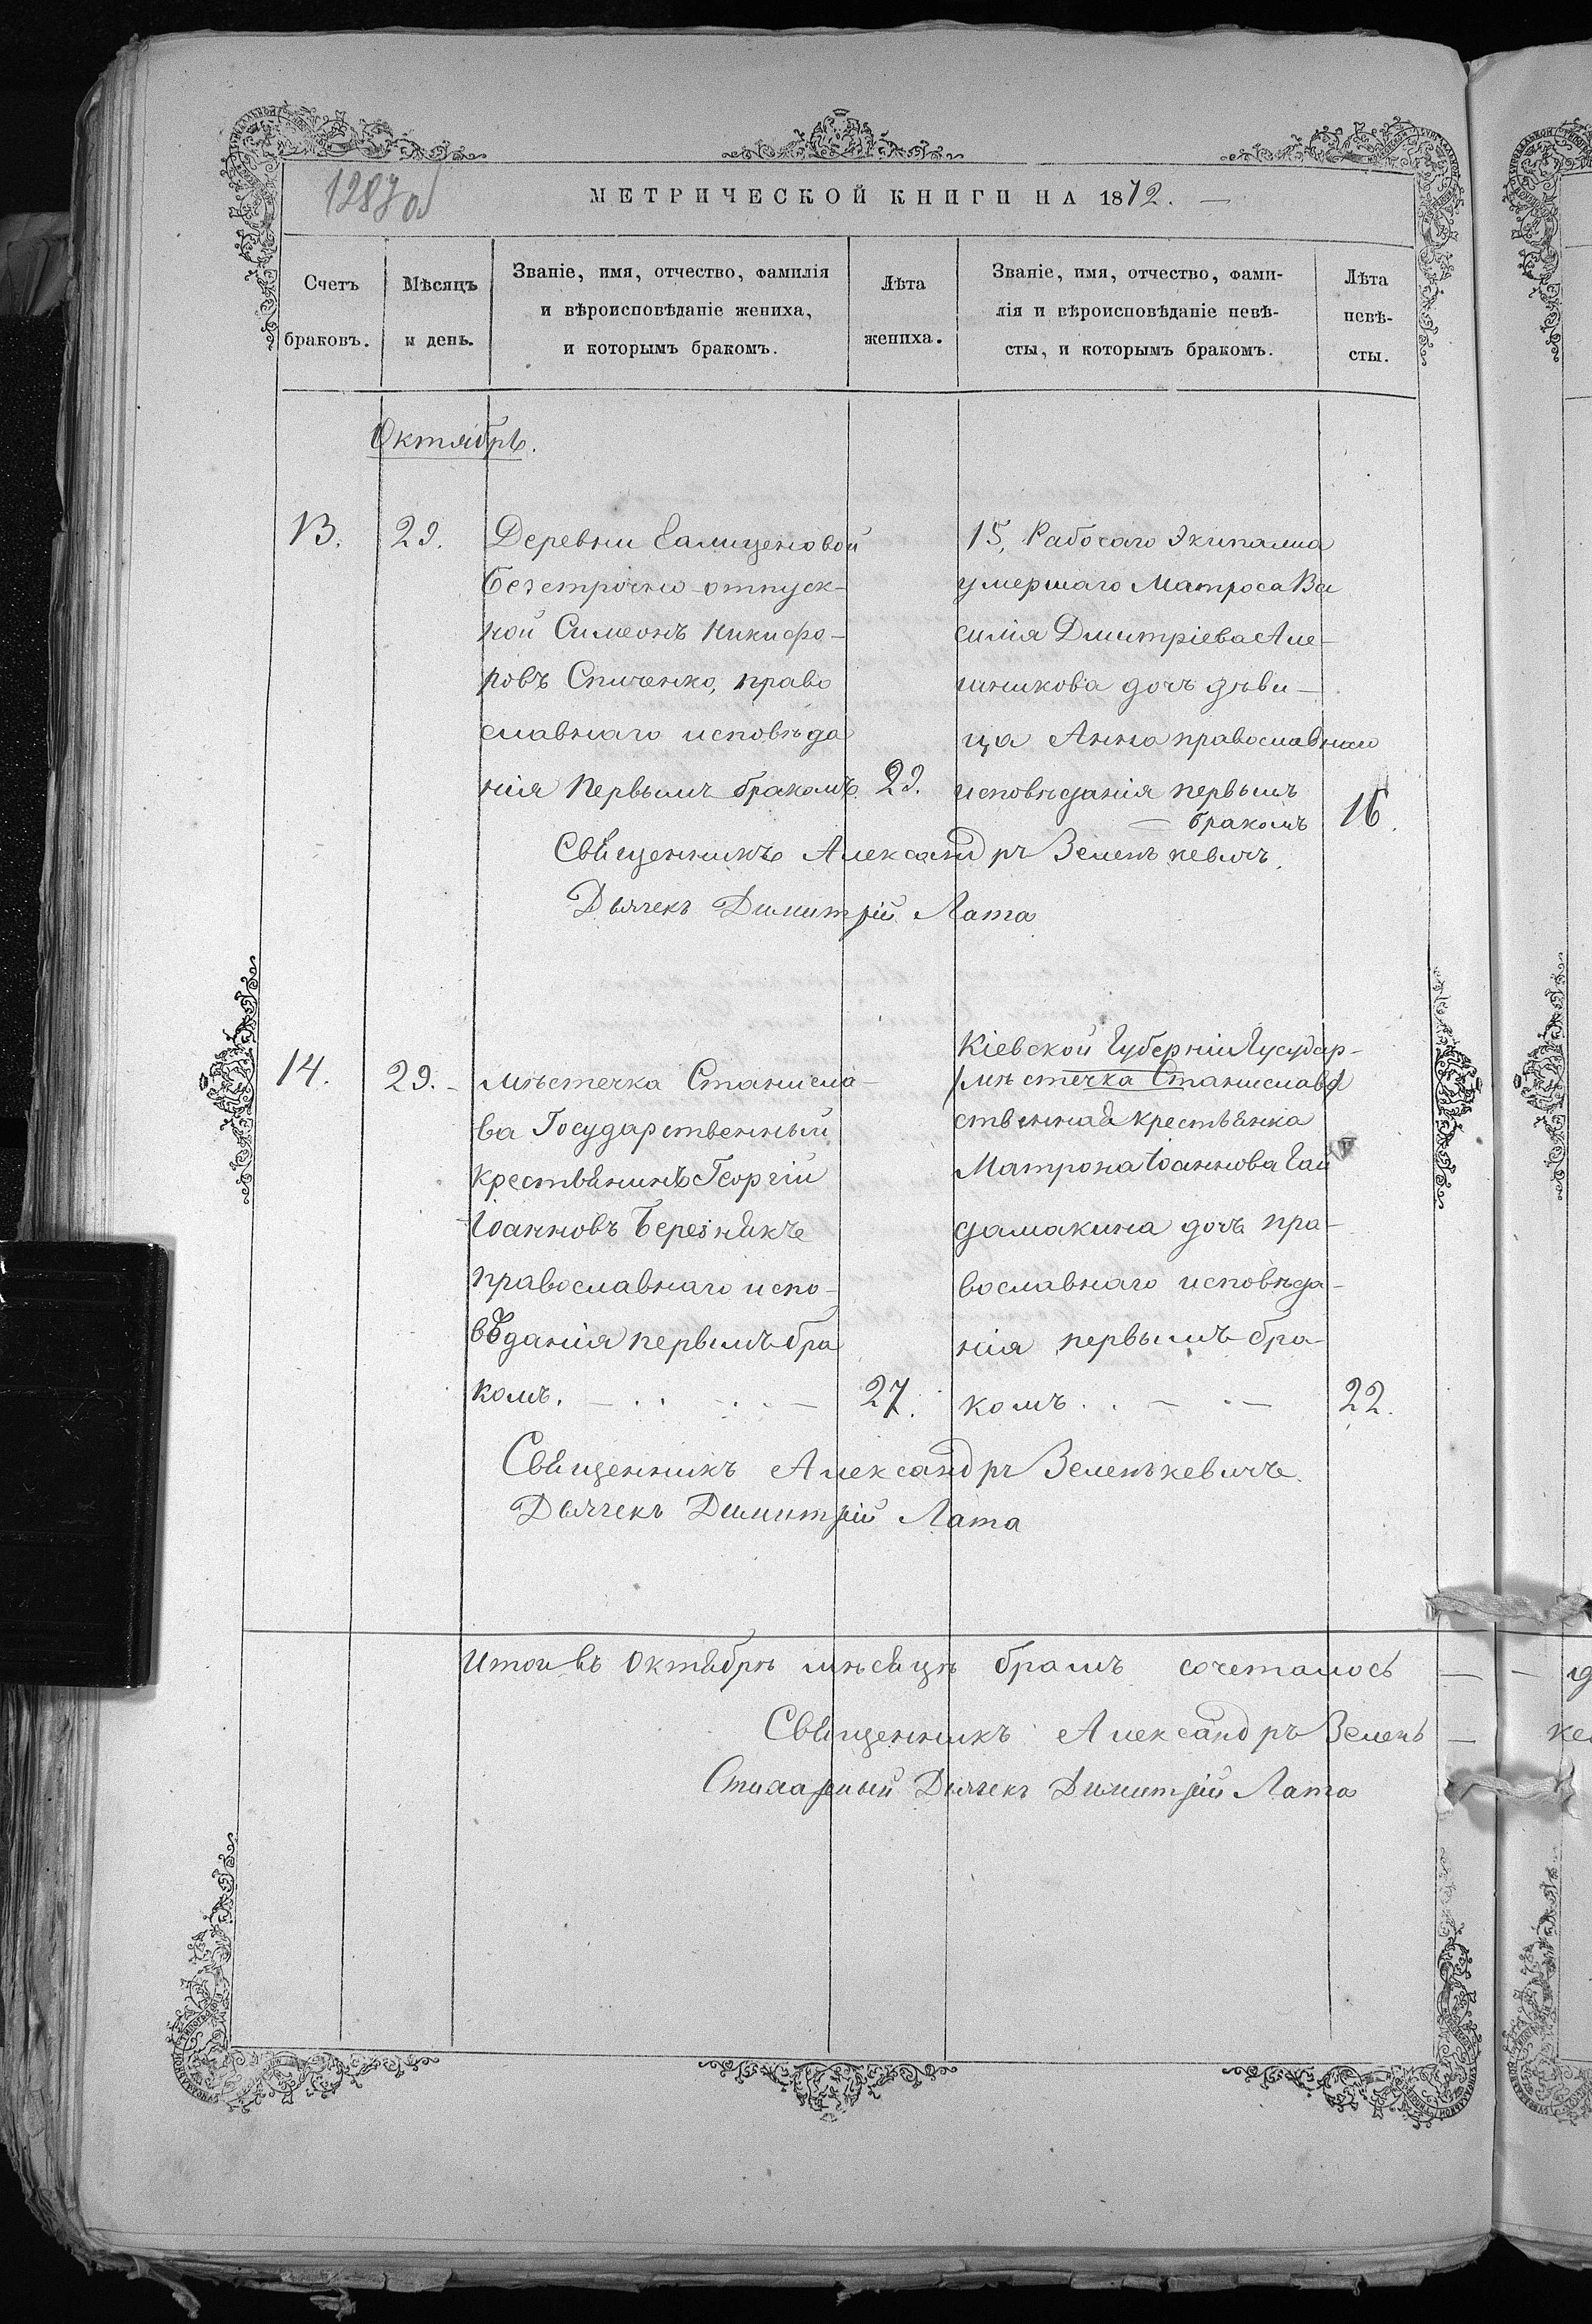 1287об
МЕТРИЧЕСКОЙ КНИГИ НА 1872. —
Счетъ браковъ.
Мѣсяцъ и день.
Званіе, имя, отчество, фамилія
и вѣроисповѣданіе жениха,
и которымъ бракомъ.
Лѣта жениха.
Званіе, имя, отчество, фами-
лія и вѣроисповѣданіе невѣ-
сты, и которымъ бракомъ.
Лѣта
невѣ-
сты.
Октябрь.
13.
29.
Деревни
безстрочно-отпуск-
ной Симеонъ Никифо-
ровъ Спиченко, право
славнаго исповѣда
нія первымъ бракомъ.
29.
15. Рабочаго Экипажа
умершаго Матроса Ва
силія Димитріева Але-
шникова дочь дѣви-
ца Анна православнаго
исповѣданія первымъ
— бракомъ
16.
Священникъ Александръ Зеленькевичъ.
Дьячекъ Димитрій Лата
14.
29.-
мѣстечка Станисла-
ва Государственный
крестьянинъ Георгій
Іоанновъ Березнякъ
православнаго испо-
вѣданія первымъ бра
комъ.
27.
Кіевской Губерніи Государ-
(мѣстечка Станислава)
ственная крестьянка
Матрона Іоаннова Гай
дамакина дочь пра-
вославнаго исповѣда-
нія первымъ бра-
комъ
22.
Священникъ Александръ Зеленькевичъ.
Дьячекъ Димитрій Лата
Итого въ Октябрѣ мѣсяцѣ бракомъ сочеталось —
Священникъ Александръ Зелень —
Стихарный Дьячекъ Димитрій Лата